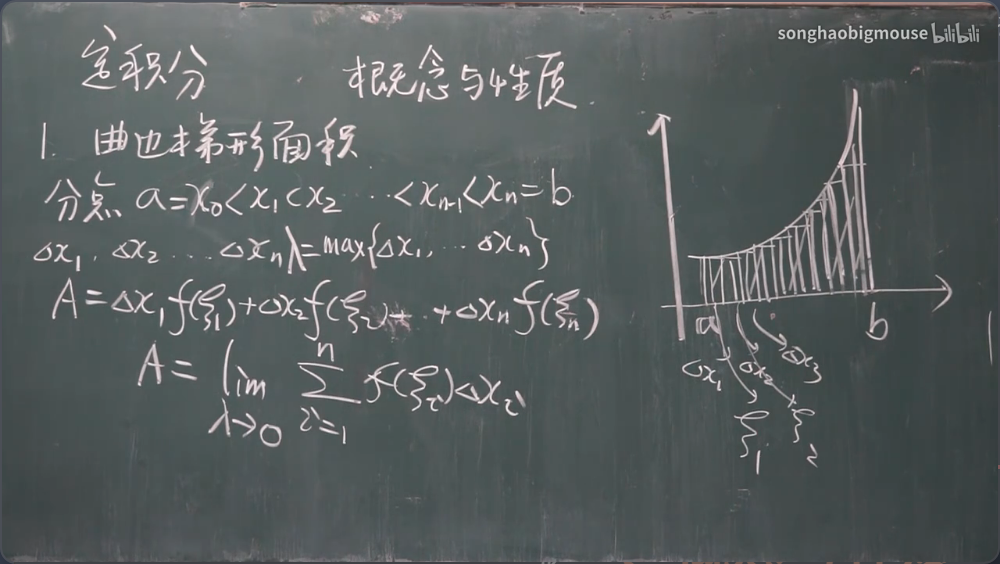 songhaobigmouse bilibili
定积分 概念与性质
1. 曲边梯形面积
分点 a=x₀<x₁<x₂ ⋯ <xₙ₋₁<xₙ=b
Δx₁, Δx₂ ⋯ Δxₙ λ=max{Δx₁, ⋯ Δxₙ}
A=Δx₁f(ξ₁)+Δx₂f(ξ₂)+ ⋯ +Δxₙf(ξₙ)
A = lim λ→0 ∑ i=1 n f(ξᵢ)Δxᵢ
a b
Δx₁ Δx₂ Δx₃
ξ₁ ξ₂